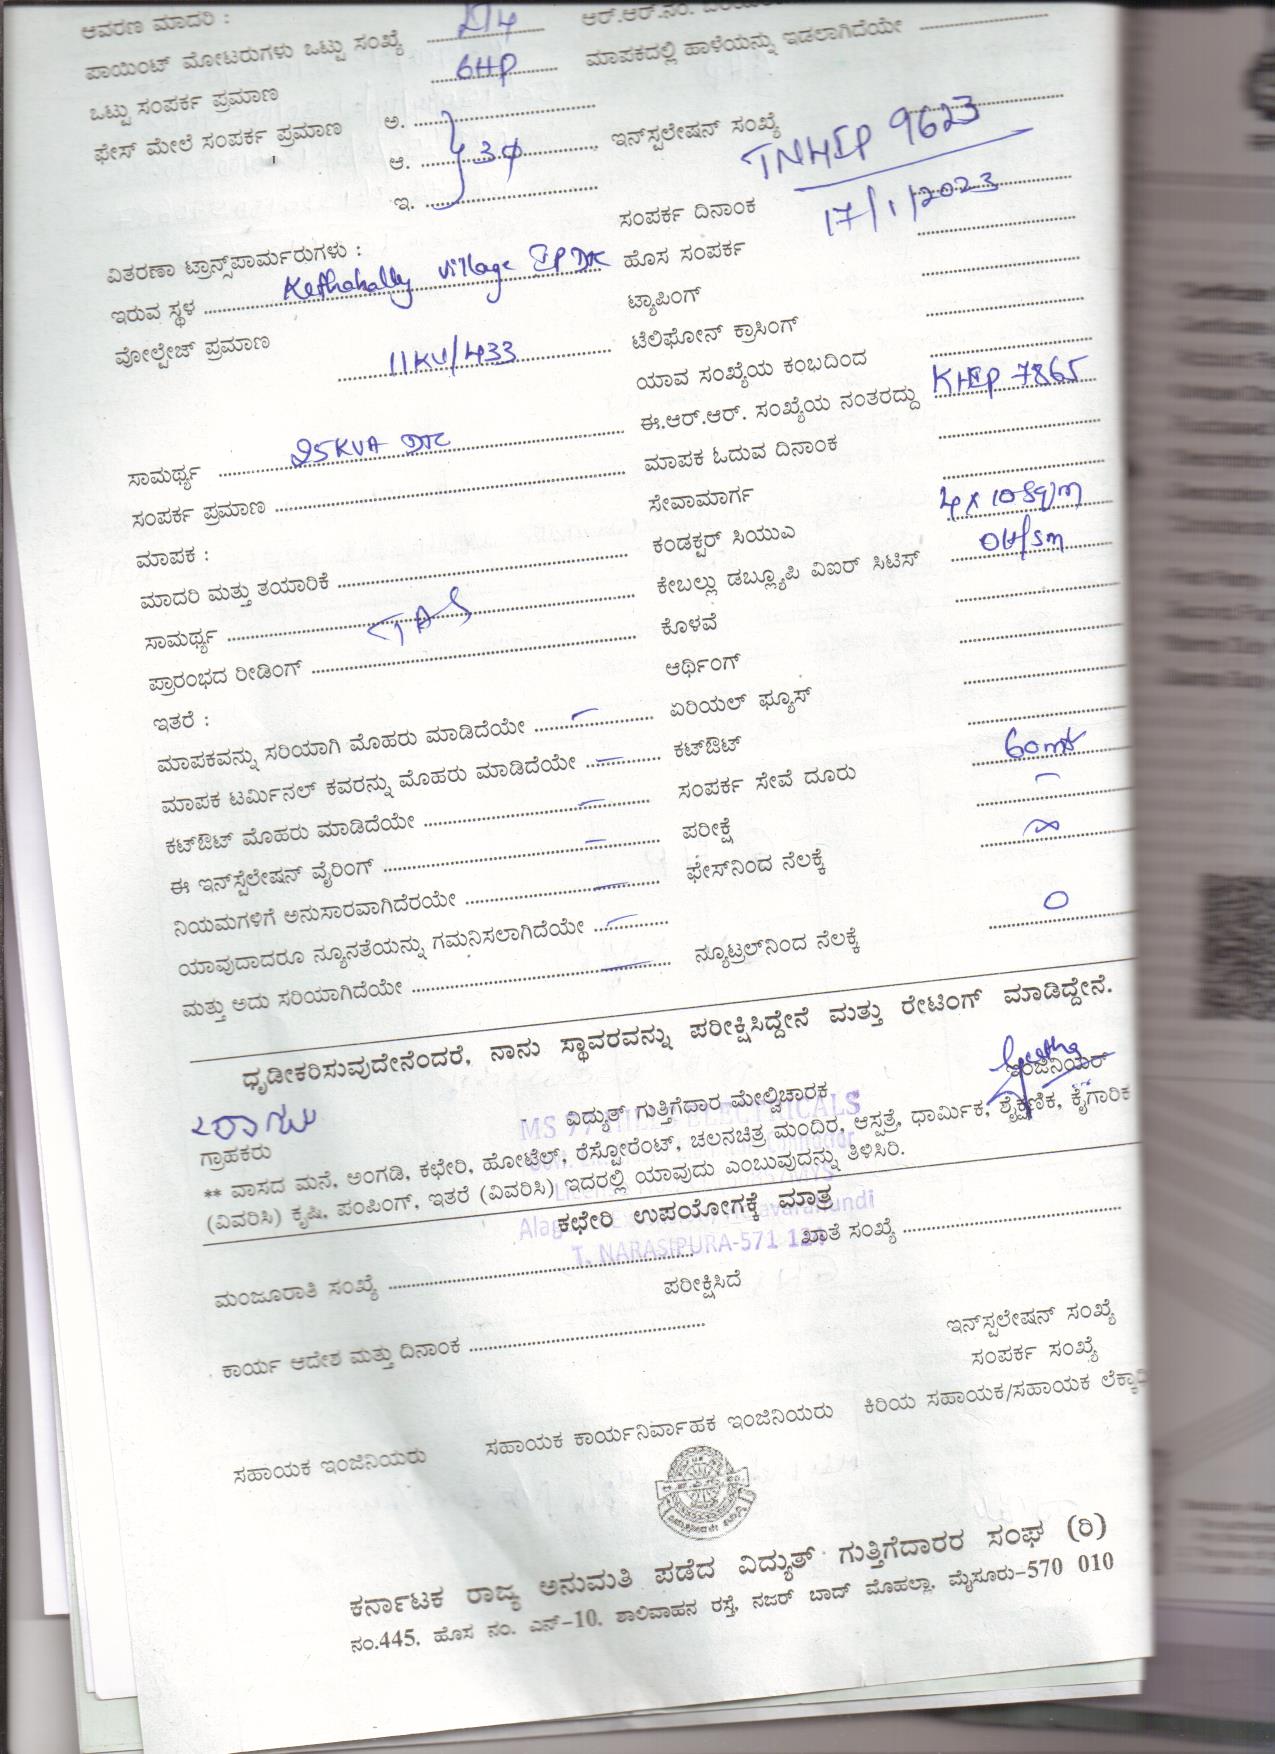 ಆವರಣ ಮಾದರಿ :
ಪಾಯಿಂಟ್ ಮೋಟರುಗಳು ಒಟ್ಟು ಸಂಖ್ಯೆ ಆರ್.ಆರ್.ನಂ.
ಒಟ್ಟು ಸಂಪರ್ಕ ಪ್ರಮಾಣ 6HP ಮಾಪಕದಲ್ಲಿ ಹಾಳೆಯನ್ನು ಇಡಲಾಗಿದೆಯೇ
ಫೇಸ್ ಮೇಲೆ ಸಂಪರ್ಕ ಪ್ರಮಾಣ ಅ.
ಆ. 3φ ಇನ್‌ಸ್ಪಲೇಷನ್ ಸಂಖ್ಯೆ TNHIP 9623
ಇ.
ಸಂಪರ್ಕ ದಿನಾಂಕ 17/1/2023
ವಿತರಣಾ ಟ್ರಾನ್ಸ್‌ಪಾರ್ಮರುಗಳು : ಹೊಸ ಸಂಪರ್ಕ
ಇರುವ ಸ್ಥಳ Kethahally village IP DTC ಟ್ಯಾಪಿಂಗ್
ವೋಲ್ಟೇಜ್ ಪ್ರಮಾಣ 11KV/433 ಟೆಲಿಫೋನ್ ಕ್ರಾಸಿಂಗ್
ಯಾವ ಸಂಖ್ಯೆಯ ಕಂಬದಿಂದ
ಈ.ಆರ್.ಆರ್. ಸಂಖ್ಯೆಯ ನಂತರದ್ದು KHIP 7865
ಸಾಮರ್ಥ್ಯ 25KVA DTC ಮಾಪಕ ಓದುವ ದಿನಾಂಕ
ಸಂಪರ್ಕ ಪ್ರಮಾಣ ಸೇವಾಮಾರ್ಗ
ಮಾಪಕ : ಕಂಡಕ್ಟರ್ ಸಿಯುವಿ 4x10Sq/m
ಮಾದರಿ ಮತ್ತು ತಯಾರಿಕೆ ಕೇಬಲ್ಲು ಡಬ್ಲ್ಯೂಪಿ ವಿಐರ್ ಸಿಟಿಸ್ OH/Sm
ಸಾಮರ್ಥ್ಯ ಕೊಳವೆ
ಪ್ರಾರಂಭದ ರೀಡಿಂಗ್ ಆರ್ಥಿಂಗ್
ಇತರೆ : ಏರಿಯಲ್ ಫ್ಯೂಸ್
ಮಾಪಕವನ್ನು ಸರಿಯಾಗಿ ಮೊಹರು ಮಾಡಿದೆಯೇ – ಕಟ್‌ಔಟ್
ಮಾಪಕ ಟರ್ಮಿನಲ್ ಕವರನ್ನು ಮೊಹರು ಮಾಡಿದೆಯೇ – ಸಂಪರ್ಕ ಸೇವೆ ದೂರು 60mt
ಕಟ್‌ಔಟ್ ಮೊಹರು ಮಾಡಿದೆಯೇ – ಪರೀಕ್ಷೆ –
ಈ ಇನ್‌ಸ್ಪೆಲೇಷನ್ ವೈರಿಂಗ್ – ಫೇಸ್‌ನಿಂದ ನೆಲಕ್ಕೆ ∞
ನಿಯಮಗಳಿಗೆ ಅನುಸಾರವಾಗಿದೆರಯೇ –
ಯಾವುದಾದರೂ ನ್ಯೂನತೆಯನ್ನು ಗಮನಿಸಲಾಗಿದೆಯೇ – ನ್ಯೂಟ್ರಲ್‌ನಿಂದ ನೆಲಕ್ಕೆ 0
ಮತ್ತು ಅದು ಸರಿಯಾಗಿದೆಯೇ –
ಧೃಡೀಕರಿಸುವುದೇನೆಂದರೆ, ನಾನು ಸ್ಥಾವರವನ್ನು ಪರೀಕ್ಷಿಸಿದ್ದೇನೆ ಮತ್ತು ರೇಟಿಂಗ್ ಮಾಡಿದ್ದೇನೆ.
ಗ್ರಾಹಕರು ವಿದ್ಯುತ್ ಗುತ್ತಿಗೆದಾರ ಮೇಲ್ವಿಚಾರಕ ಇಂಜಿನಿಯರ್
MS 77 HILLS ELECTRICALS
** ವಾಸದ ಮನೆ, ಅಂಗಡಿ, ಕಛೇರಿ, ಹೋಟೆಲ್, ರೆಸ್ಟೋರೆಂಟ್, ಚಲನಚಿತ್ರ ಮಂದಿರ, ಆಸ್ಪತ್ರೆ, ಧಾರ್ಮಿಕ, ಶೈಕ್ಷಣಿಕ, ಕೈಗಾರಿಕ
(ವಿವರಿಸಿ) ಕೃಷಿ, ಪಂಪಿಂಗ್, ಇತರೆ (ವಿವರಿಸಿ) ಇದರಲ್ಲಿ ಯಾವುದು ಎಂಬುವುದನ್ನು ತಿಳಿಸಿರಿ.
ಕಛೇರಿ ಉಪಯೋಗಕ್ಕೆ ಮಾತ್ರ
T. NARASIPURA-571 124
ಮಂಜೂರಾತಿ ಸಂಖ್ಯೆ ಖಾತೆ ಸಂಖ್ಯೆ
ಪರೀಕ್ಷಿಸಿದೆ
ಕಾರ್ಯ ಆದೇಶ ಮತ್ತು ದಿನಾಂಕ ಇನ್‌ಸ್ಪಲೇಷನ್ ಸಂಖ್ಯೆ
ಸಂಪರ್ಕ ಸಂಖ್ಯೆ
ಸಹಾಯಕ ಇಂಜಿನಿಯರು ಸಹಾಯಕ ಕಾರ್ಯನಿರ್ವಾಹಕ ಇಂಜಿನಿಯರು ಕಿರಿಯ ಸಹಾಯಕ/ಸಹಾಯಕ
ಕರ್ನಾಟಕ ರಾಜ್ಯ ಅನುಮತಿ ಪಡೆದ ವಿದ್ಯುತ್ ಗುತ್ತಿಗೆದಾರರ ಸಂಘ (ರಿ)
ನಂ.445, ಹೊಸ ನಂ. ಎನ್-10, ಶಾಲಿವಾಹನ ರಸ್ತೆ, ನಜರ್ ಬಾದ್ ಮೊಹಲ್ಲಾ, ಮೈಸೂರು-570 010